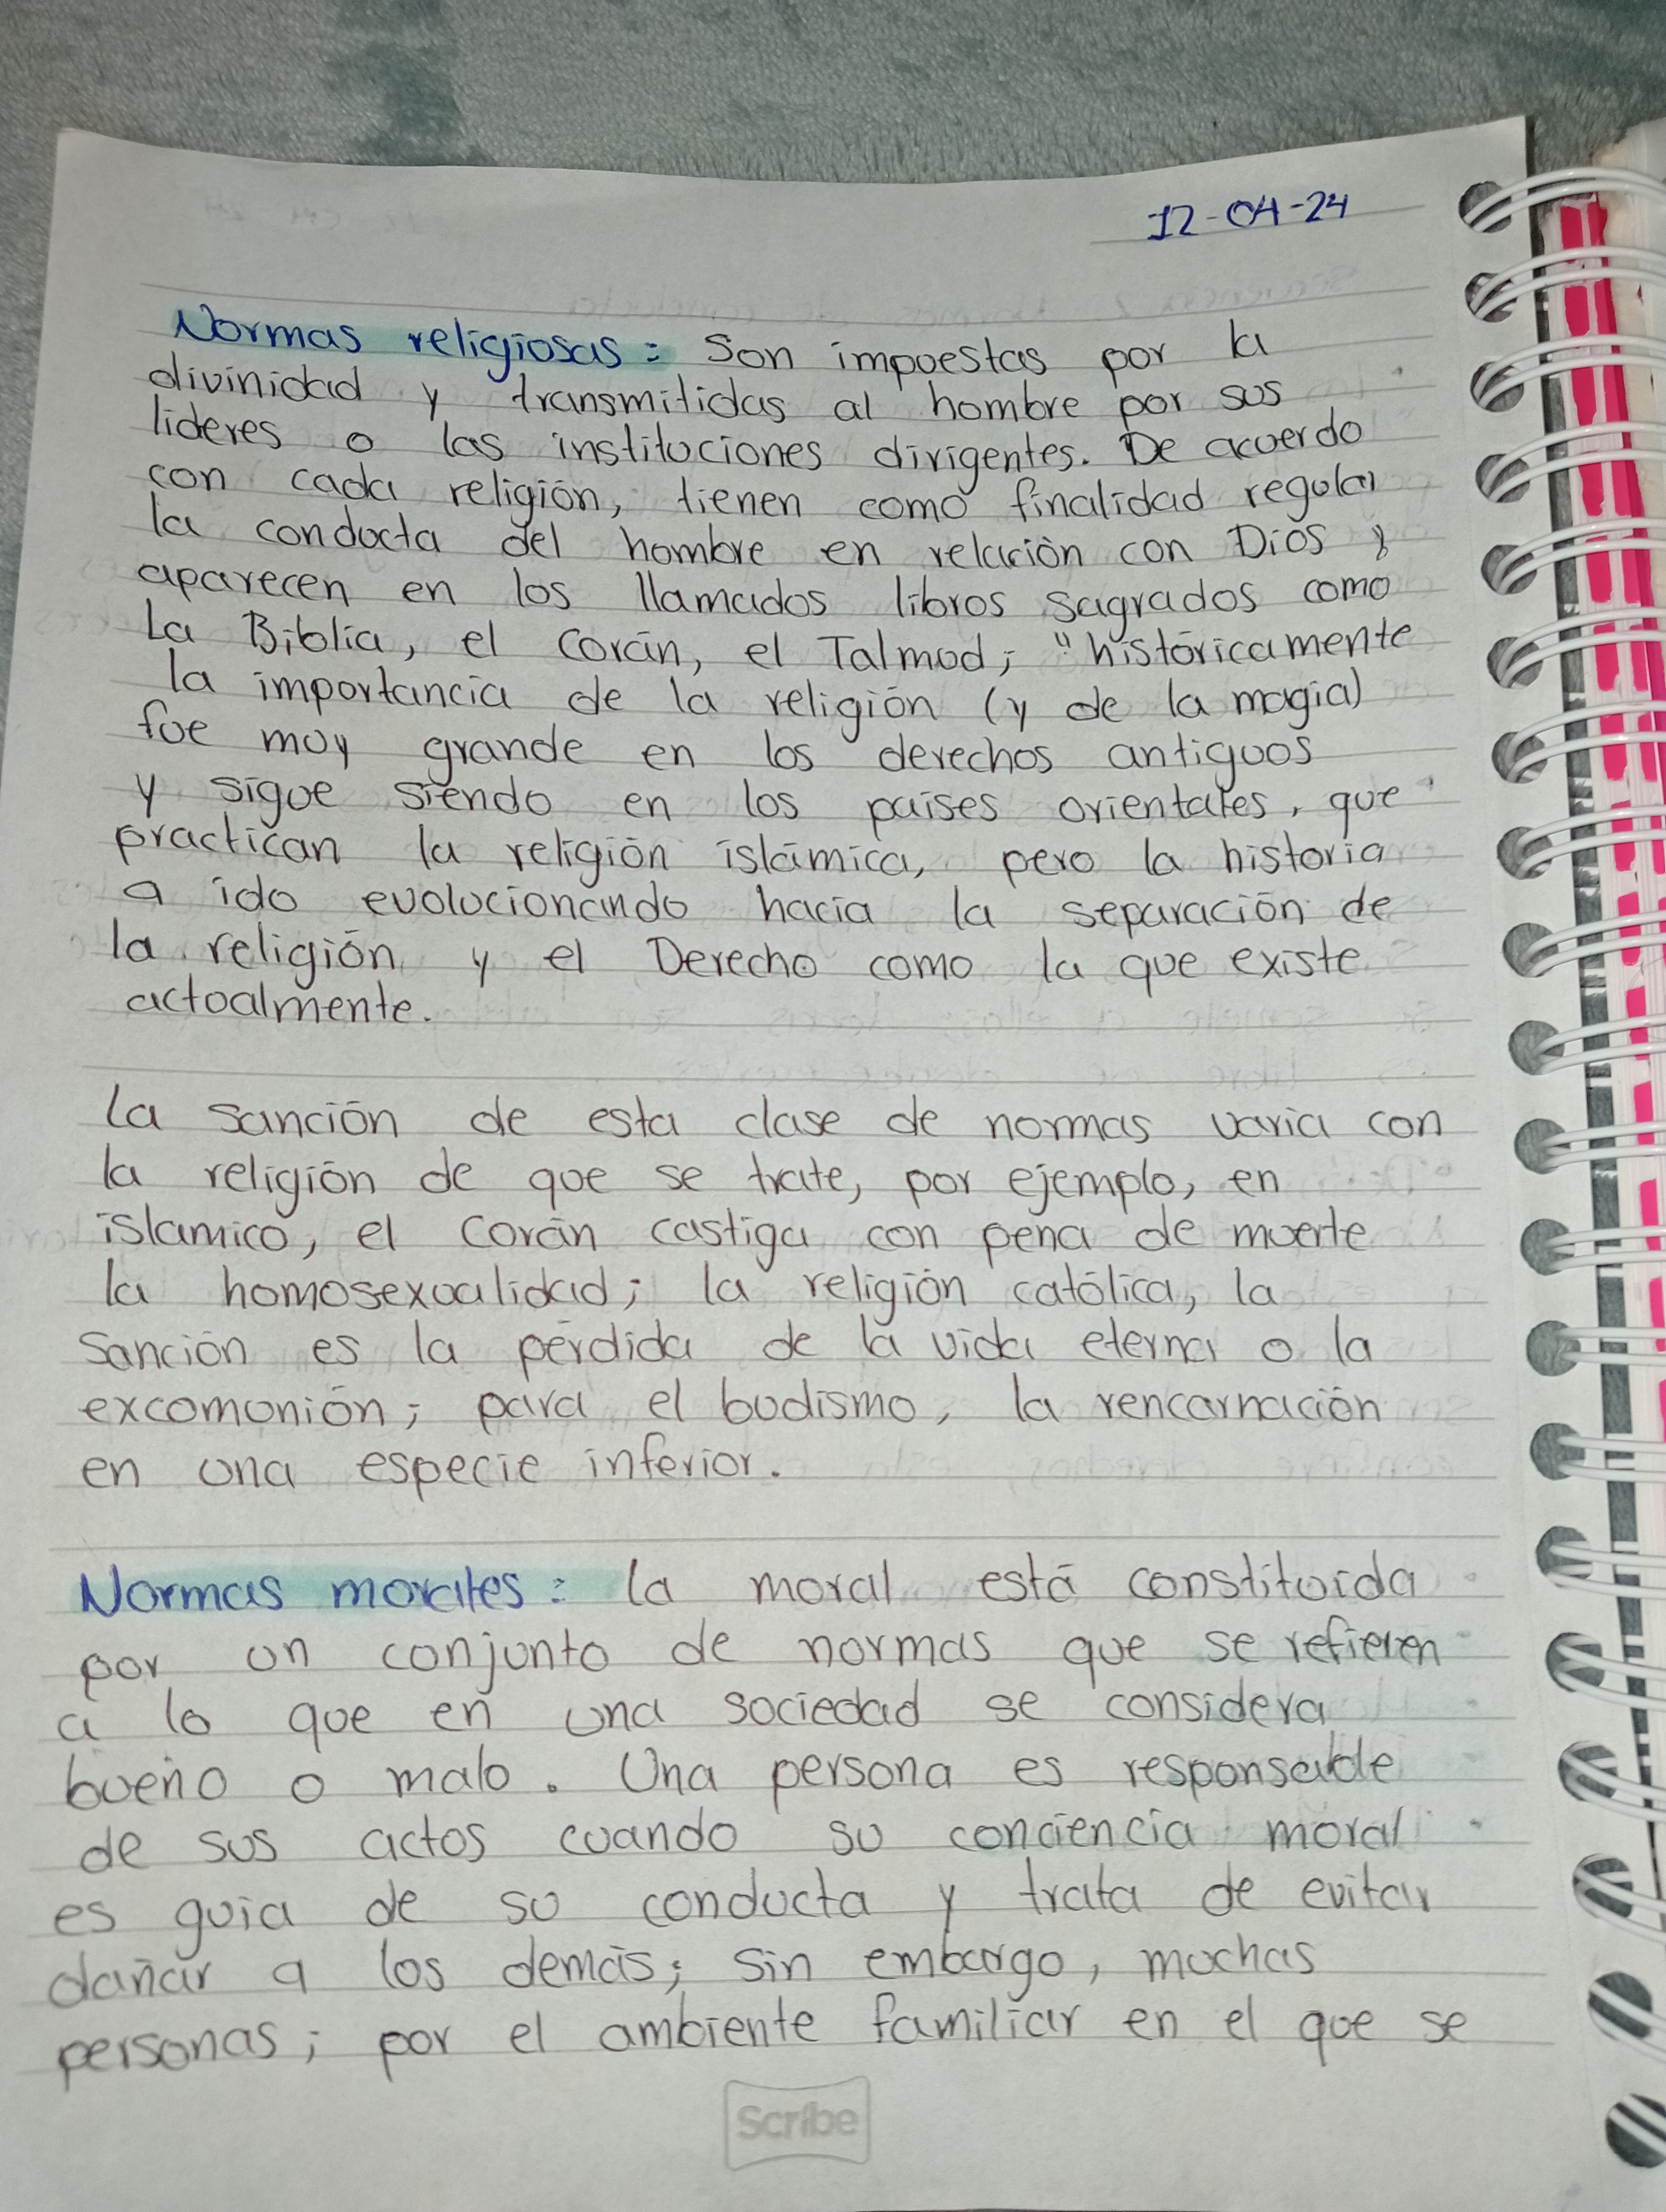 12-04-24
Normas religiosas: Son impuestas por la
divinidad y transmitidas al hombre por sus
lideres o las instituciones dirigentes. De acuerdo
con cada religión, tienen como finalidad regular
la conducta del hombre en relación con Dios y
aparecen en los llamados libros sagrados como
La Biblia, el Corán, el Talmud; "históricamente
la importancia de la religión (y de la magia)
fue muy grande en los derechos antiguos
y sigue siendo en los paises orientales, que
practican la religión islámica, pero la historia
a ido evolucionando hacia la separación de
la religión y el Derecho como la que existe
actualmente.
La sanción de esta clase de normas varia con
la religión de que se trate, por ejemplo, en
islamico, el Corán castiga con pena de muerte
la homosexualidad; la religión católica, la
sanción es la pérdida de la vida eterna o la
excomunión; para el budismo, la rencarnación
en una especie inferior.
Normas morales: la moral está constituida
por un conjunto de normas que se refieren
a lo que en una sociedad se considera
bueno o malo. Una persona es responsable
de sus actos cuando su conciencia moral
es guia de su conducta y trata de evitar
dañar a los demás; sin embargo, muchas
personas; por el ambiente familiar en el que se
Scribe